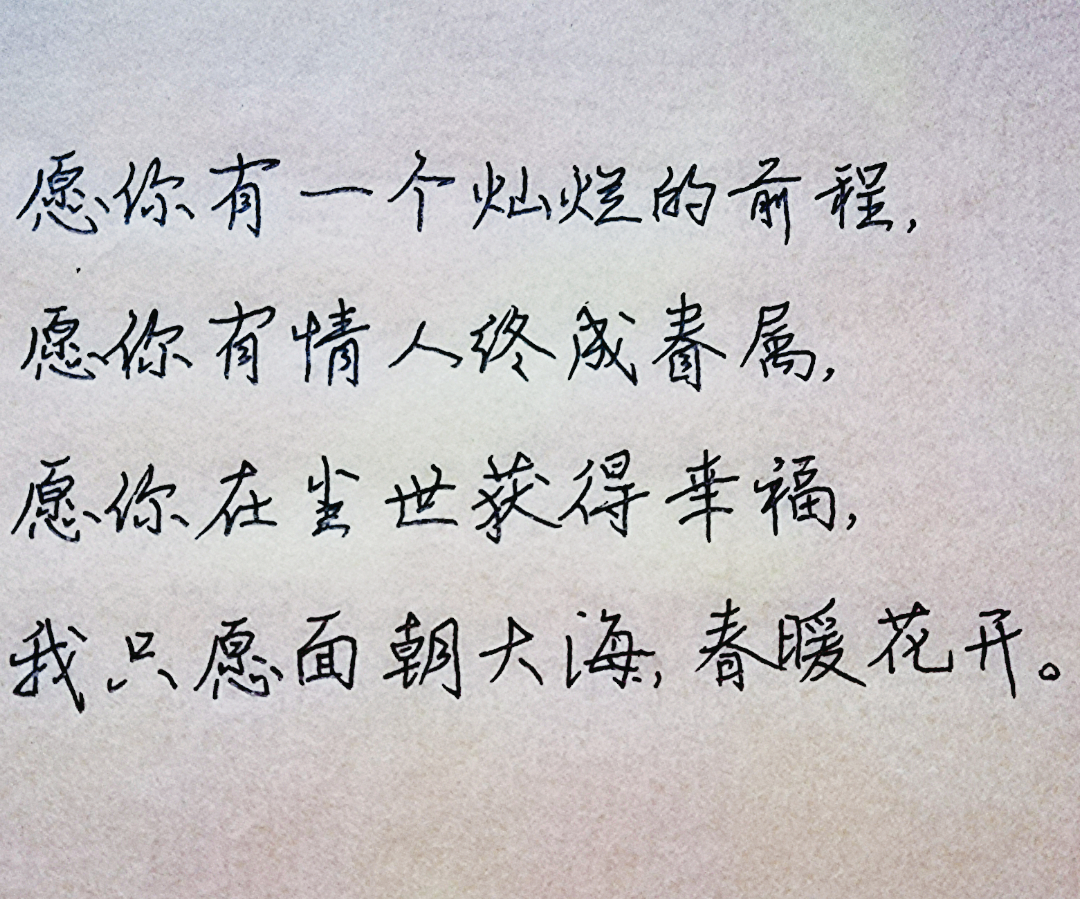 愿你有一个灿烂的前程,
愿你有情人终成眷属,
愿你在尘世获得幸福,
我只愿面朝大海,春暖花开。